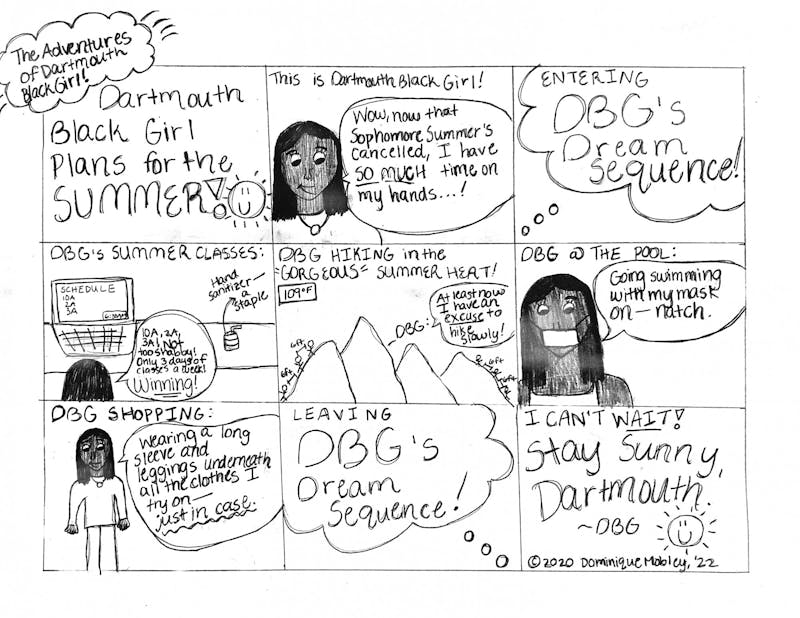 The Adventures
of Dartmouth
Black Girl!
Dartmouth
Black Girl
Plans for the
SUMMER!
This is Dartmouth Black Girl!
Wow, now that
Sophomore Summer's
cancelled, I have
so much time on
my hands...!
ENTERING
DBG's
Dream
Sequence!
DBG'S SUMMER CLASSES:
SCHEDULE
10A
2A
3A
Hand
sanitizer—
a
staple
10A, 2A,
3A! Not
too shabby!
Only 3 days of
classes a week!
Winning!
DBG HIKING in the
"GORGEOUS" SUMMER HEAT!
109°F
DBG:
At least now
I have an
excuse to
hike
slowly!
6ft
6ft
6ft
6ft
DBG @ THE POOL:
Going swimming
with my mask
on — natch.
DBG SHOPPING:
Wearing a long
sleeve and
leggings underneath
all the clothes I
try on —
just in case.
LEAVING
DBG's
Dream
Sequence!
I CAN'T WAIT!
Stay Sunny,
Dartmouth.
~DBG
©2020 Dominique Mobley, '22